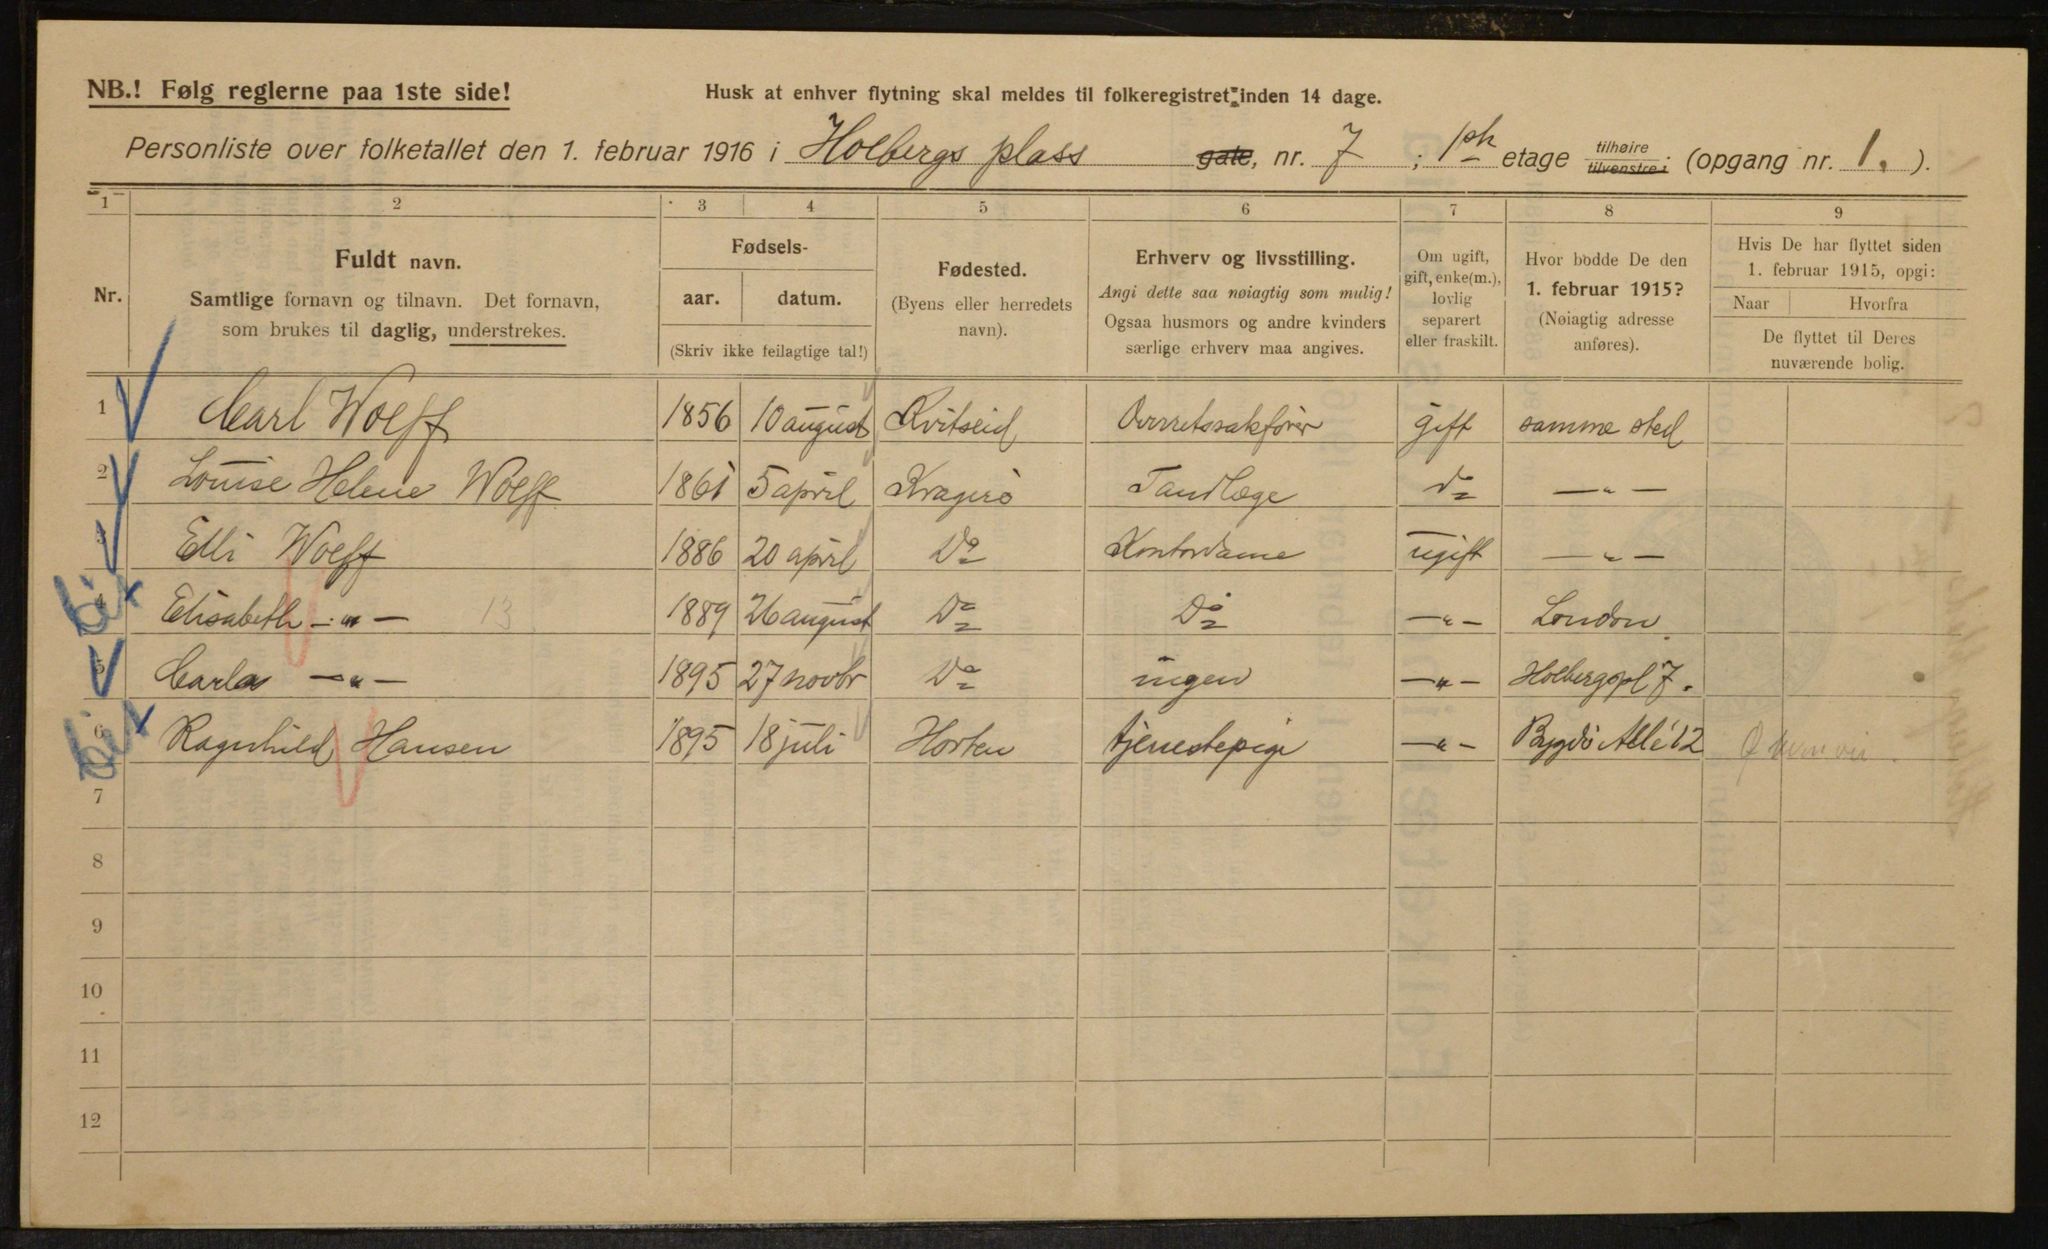 NB.! Følg reglerne paa 1ste side!
Husk at enhver flytning skal meldes til folkeregistret inden 14 dage.
Personliste over folketallet den 1. februar 1916 i Holbergs plass gate, nr. 7 ; 1ste etage tilhøire tilvenstre ; (opgang nr. 1. ).
1 2 3 4 5 6 7 8 9
Nr.
Fuldt navn.
Samtlige fornavn og tilnavn. Det fornavn,
som brukes til daglig, understrekes.
Fødsels-
aar. datum.
(Skriv ikke feilagtige tal!)
Fødested.
(Byens eller herredets
navn).
Erhverv og livsstilling.
Angi dette saa nøiagtig som mulig!
Ogsaa husmors og andre kvinders
særlige erhverv maa angives.
Om ugift,
gift, enke(m.),
lovlig
separert
eller fraskilt.
Hvor bodde De den
1. februar 1915?
(Nøiagtig adresse
anføres).
Hvis De har flyttet siden
1. februar 1915, opgi:
Naar Hvorfra
De flyttet til Deres
nuværende bolig.
1 Carl Wolff 1856 10 august Kvitseid Overretssakfører gift samme sted
2 Louise Helene Wolff 1861 5 april Kragerø Tandlæge do — " —
3 Elli Wolff 1886 20 april Do Kontordame ugift — " —
4 Elisabeth — " — 13 1889 26 august Do Do — " — London
5 Carla — " — 1895 27 novbr Do ingen — " — Holbergspl 7.
6 Ragnhild Hansen 1895 18 juli Horten tjenestepige — " — Bygdö Allé 12
7
8
9
10
11
12